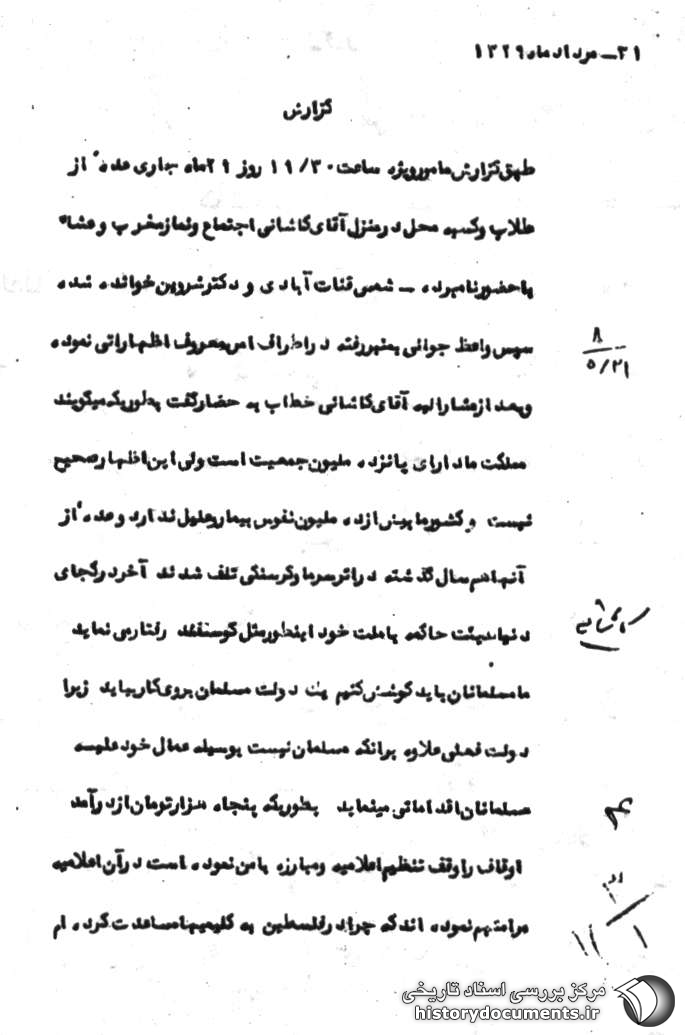 ۳۱ــ مرداد ماه ۱۳۲۹
گزارش
طبق گزارش مامور ویژه ساعت ۱۹/۳۰ روز ۲۹ ماه جاری عده ٔ از
طلاب و کسبه محل در منزل آقای کاشانی اجتماع و نماز مغرب و عشاء
با حضور نامبرده ــ شمس قنات آبادی و دکتر شروین خوانده شده
سپس واعظ جوانی بمنبر رفته در اطراف امر بمعروف اظهاراتی نموده
و بعد از مشارالیه آقای کاشانی خطاب به حضار گفت بطوریکه میگویند
مملکت ما دارای پانزده ملیون جمعیت است ولی این اظهار صحیح
نیست و کشور ما بیش از ده ملیون نفوس بیمار و علیل ندارد و عده ٔ از
آنها هم سال گذشته در اثر سرما و گرسنگی تلف شدند آخر در کجای
دنیا هیئت حاکمه با ملت خود اینطور مثل گوسفند رفتار می نماید
ما مسلمانان باید کوشش کنیم یک دولت مسلمان بروی کار بیاید زیرا
دولت فعلی علاوه برانکه مسلمان نیست بوسیله عمال خود علیه
مسلمانان اقداماتی مینماید بطوریکه پنجاه هزار تومان از درآمد
اوقاف را وقف تنظیم اعلامیه و مبارزه با من نموده است در آن اعلامیه
مرا متهم نموده اند که چرا در فلسطین به کلیمیها مساعدت کرده ام
۸
۵/۲۱
کاشانی
۳
۱
۱۱
مرکز بررسی اسناد تاریخی
historydocuments.ir